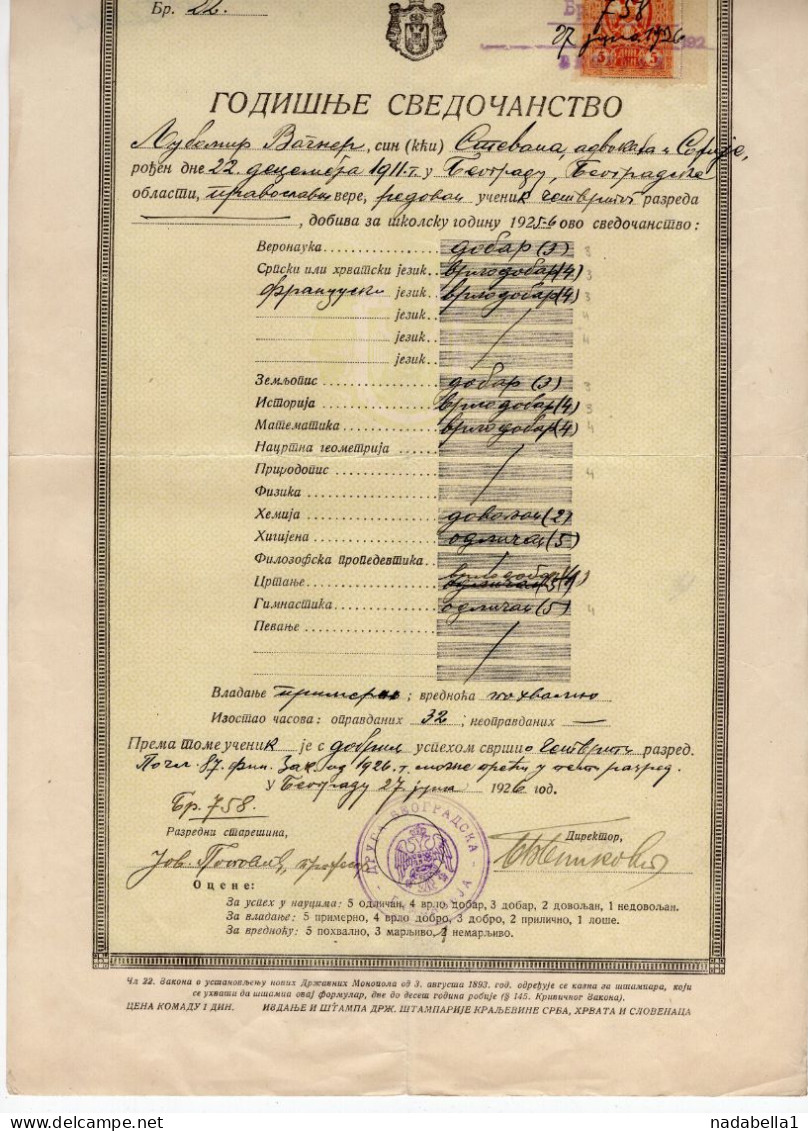 Бр. 22.
Бр 758
27 јуна 1926
5 5
ГОДИШЊЕ СВЕДОЧАНСТВО
Љубомир Вагнер, син (кћи) Стевана, адвоката и Софије,
рођен дне 22. децембра 1911. г. у Београду, Београдске
области, православне вере, редован ученик четвртог разреда
, добива за школску годину 1925-6 ово сведочанство:
Веронаука добар (3) 3
Српски или хрватски језик врло добар (4) 3
Француски језик врло добар (4) 3
језик 4
језик 4
језик
Земљопис добар (3) 3
Историја врло добар (4) 3
Математика врло добар (4) 4
Нацртна геометрија
Природопис 4
Физика
Хемија довољан (2)
Хигијена одличан (5)
Филозофска пропедевтика
Цртање врло добар (4)
Гимнастика одличан (5) 4
Певање
Владање примерно; вредноћа похвално
Изостао часова: оправданих 32; неоправданих —
Према томе ученик је с добрим успехом свршио четврти разред.
По чл. 87. фин. Зак. од 1926. г. може прећи у пети разред.
У Београду 27 јуна 1926 год.
Бр. 758.
Разредни старешина,
Директор,
Јов. Поповић, проф.
ДРУГА БЕОГРАДСКА
Оцене:
За успех у науцима: 5 одличан, 4 врло добар, 3 добар, 2 довољан, 1 недовољан.
За владање: 5 примерно, 4 врло добро, 3 добро, 2 прилично, 1 лоше.
За вредноћу: 5 похвално, 3 марљиво, 2 немарљиво.
Чл 22. Закона о установљењу нових Државних Монопола од 3. августа 1893. год. одређује се казна за штампара, који
се ухвати да штампа овај формулар, две до десет година робије (§ 145. Кривичног Закона).
ЦЕНА КОМАДУ 1 ДИН. ИЗДАЊЕ И ШТАМПА ДРЖ. ШТАМПАРИЈЕ КРАЉЕВИНЕ СРБА, ХРВАТА И СЛОВЕНАЦА
www.delcampe.net
nadabella1